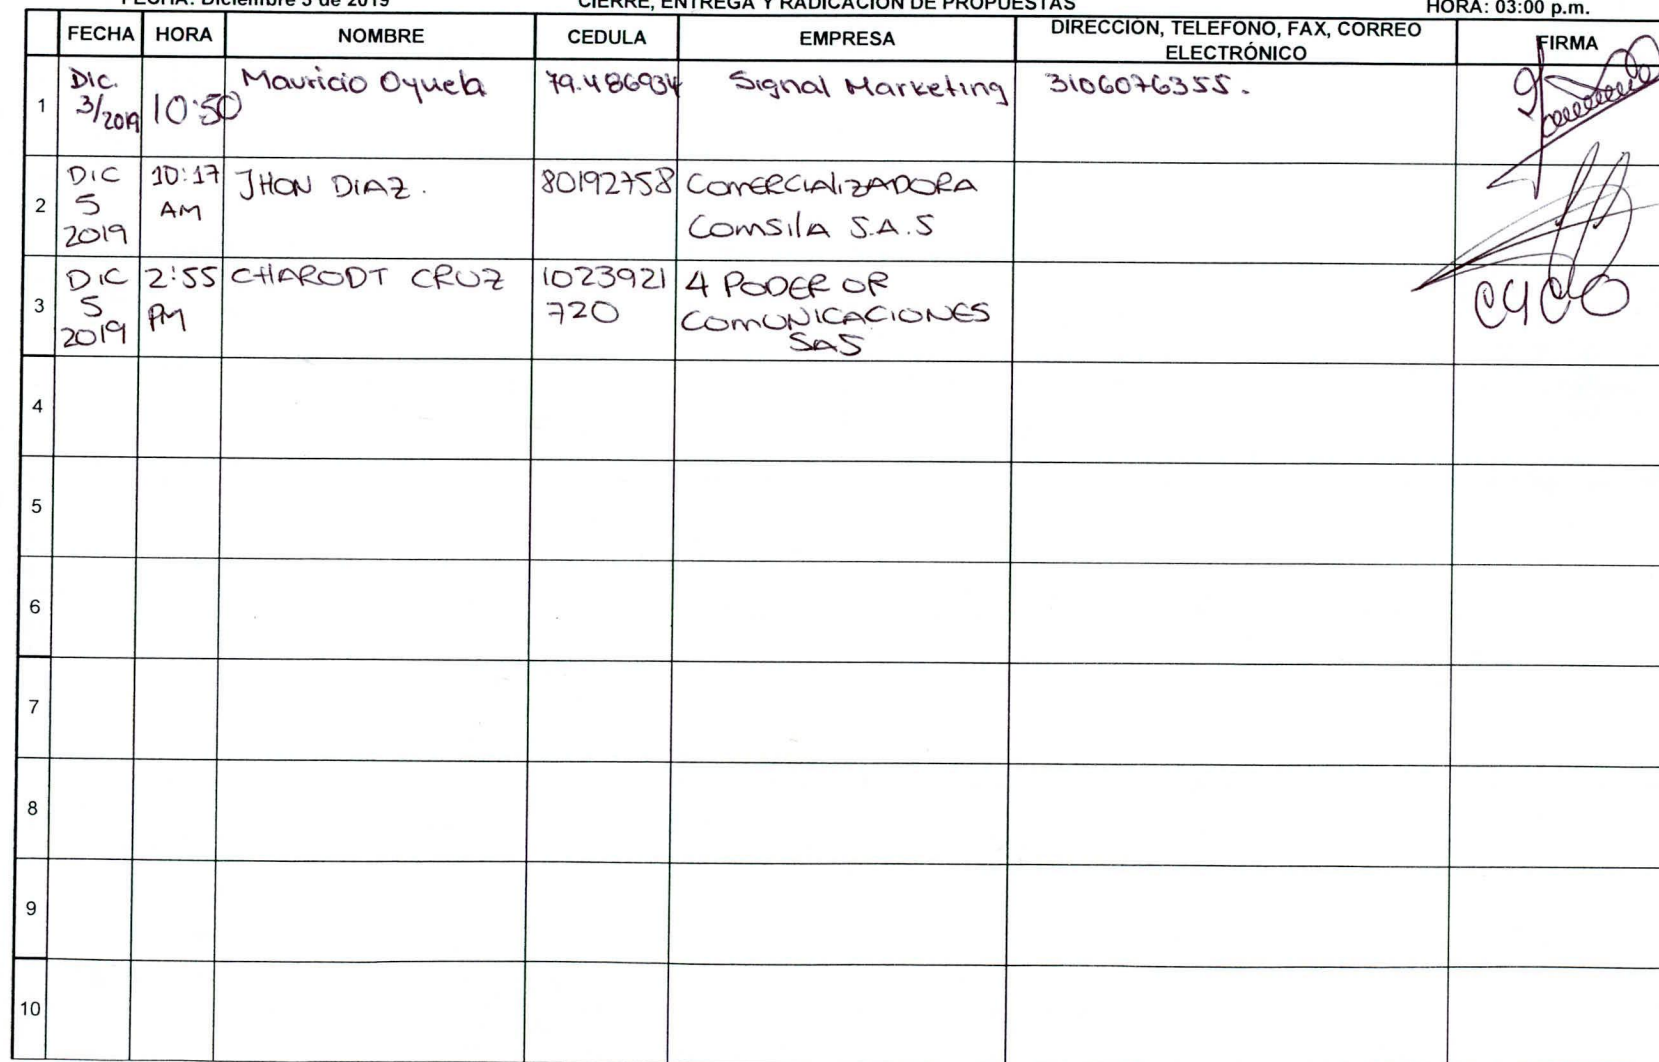 FECHA: Diciembre 5 de 2019 CIERRE, ENTREGA Y RADICACION DE PROPUESTAS HORA: 03:00 p.m.
FECHA HORA NOMBRE CEDULA EMPRESA DIRECCIÓN, TELEFONO, FAX, CORREO ELECTRÓNICO FIRMA
1 DIC. 3/2019 10:50 Mauricio Oyuela 79.486934 Signal Marketing 3106076355.
2 DIC 5 2019 10:17 AM JHON DIAZ. 80192758 COMERCIALIZADORA COMSILA S.A.S
3 DIC 5 2019 2:55 PM CHARODT CRUZ 1023921720 4 PODER OR COMUNICACIONES SAS
4
5
6
7
8
9
10